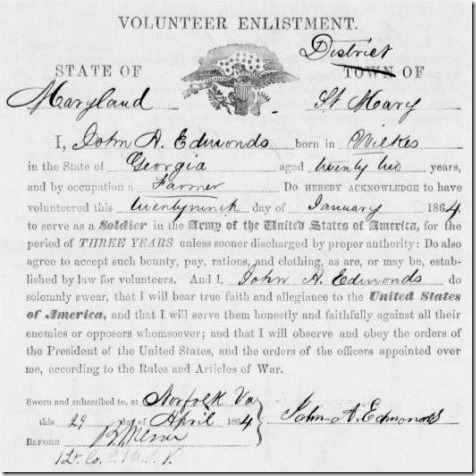 VOLUNTEER ENLISTMENT.
District
STATE OF TOWN OF
Maryland St Mary
I, John A. Edmonds born in Wilkes
in the State of Georgia aged twenty two years,
and by occupation a Farmer Do HEREBY ACKNOWLEDGE to have
volunteered this twentyninth day of January 1864.
to serve as a Soldier in the Army of the United States of America, for the
period of THREE YEARS unless sooner discharged by proper authority: Do also
agree to accept such bounty, pay, rations, and clothing, as are, or may be, estab-
lished by law for volunteers. And I, John A. Edmonds do
solemnly swear, that I will bear true faith and allegiance to the United States
of America, and that I will serve them honestly and faithfully against all their
enemies or opposers whomsoever; and that I will observe and obey the orders of
the President of the United States, and the orders of the officers appointed over
me, according to the Rules and Articles of War.
Sworn and subscribed to, at Norfolk Va
this 29 day of April 1864
John A. Edmonds
BEFORE
1 Lt. Co.